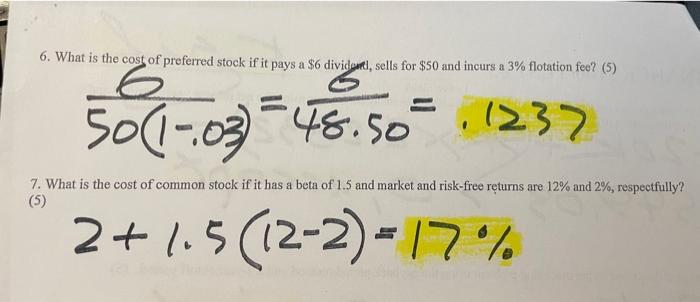 6. What is the cost of preferred stock if it pays a $6 dividend, sells for $50 and incurs a 3% flotation fee? (5)
6/50(1-.03) = 6/48.50 = .1237
7. What is the cost of common stock if it has a beta of 1.5 and market and risk-free returns are 12% and 2%, respectfully?
(5)
2+1.5(12-2)=17%